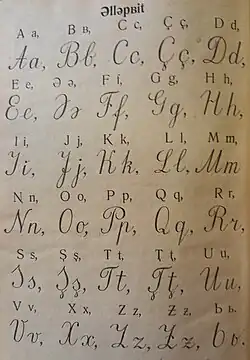 Әlləpвit
A a, B ʙ, C c, Ç ç, D d,
Aa, Bb, Cc, Çç, Dd,
E e, Ə ə, F f, G g, H h,
Ee, Əə, Ff, Gg, Hh,
I i, J j, K k, L l, M m,
Ii, Jj, Kk, Ll, Mm
N n, O o, P p, Q q, R r,
Nn, Oo, Pp, Qq, Rr,
S s, Ş ş, T t, Ţ ţ, U u,
Ss, Şş, Tt, Ţţ, Uu,
V v, X x, Z z, Ƶ ƶ, Ь ь.
Vv, Xx, Zz, Ƶƶ, ь ь.